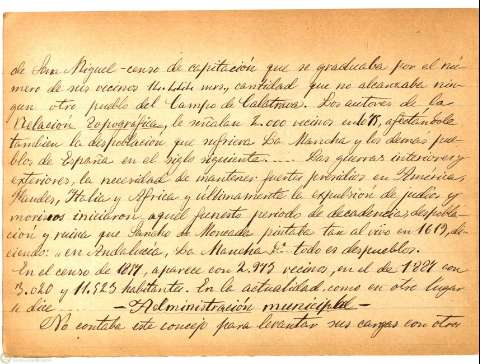 de San Miguel - censo de capitación que se graduaba por el nú-
mero de sus vecinos mrs, cantidad que no alcanzaba nin-
gun otro pueblo del Campo de Calatrava. Los autores de la
Relación Topográfica, le señalan 2.000 vecinos en afectandole
tambien la despoblacion que sufriera La Mancha y los demas pue-
blos de España en el siglo siguiente ..... Las guerras interiores y
exteriores, la necesidad de mantener fuertes presidios en América,
Flandes, Italia y Africa y últimamente la expulsión de judios y
moriscos iniciaron, aquel funesto periodo de decadencia, despobla-
ción y ruina que Sancho de Moncada pintaba tan al vivo en 1619, di-
ciendo: "en Andalucia, La Mancha Dª todo es despueblos.
En el censo de aparece con 2.973 vecinos, en el de 1887 con
3.020 y 11.523 habitantes. En la actualidad, como en otro lugar
se dice - Administración municipal -
No contaba este concejo para levantar sus cargas con otros